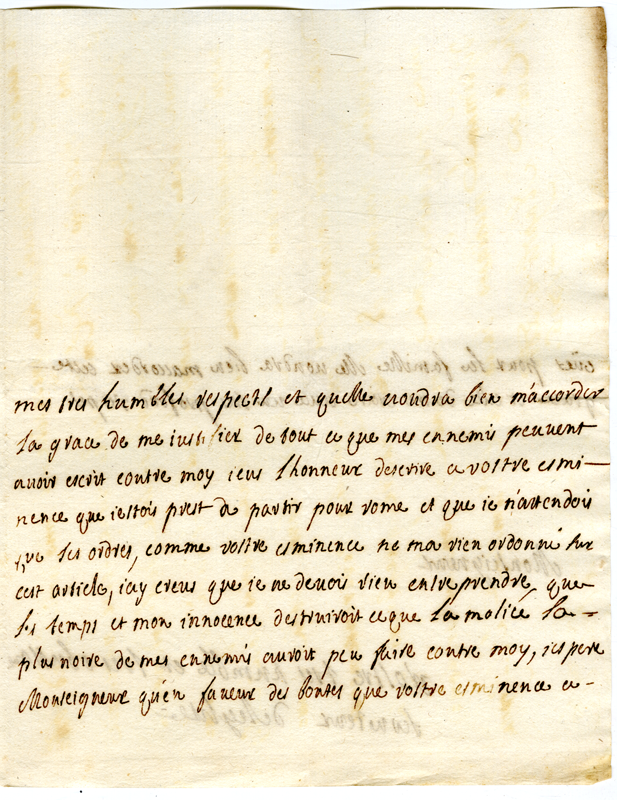 mes tres humbles respects et quelle voudra bien m'accorder
la grace de me iustifier de tout ce que mes ennemis peuvent
avoir escrit contre moy ieus lhonneur descrire a vostre esmi-
nence que iestois prest de partir pour rome et que ie n'attendois
que ses ordres, comme vostre esminence ne ma rien ordonné sur
cest article, iay creus que ie ne devois rien entreprendre, que
le temps et mon innocence destruiroit ce que la malice la
plus noire de mes ennemis auroit peu faire contre moy, iespere
Monseigneur qu'en faveur des bontes que vostre esminence a-